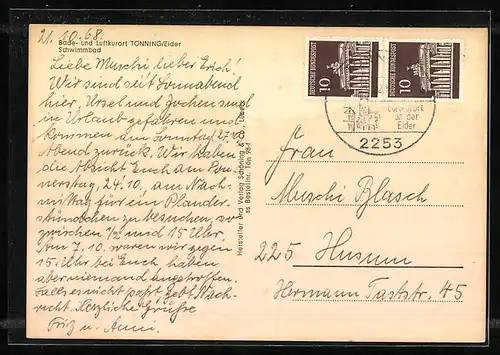 21.10.68.
Bade- und Luftkurort TÖNNING/Eider
Schwimmbad
Liebe Muschi lieber Erich!
Wir sind seit Sonnabend
hier, Ursel und Jochen sind
in Urlaub gefahren und
kommen am Sonntag 27.10.
Abend zurück. Wir haben
die Absicht Euch am Don-
nerstag, 24.10., am Nach-
mittag für ein Plauder-
stündchen zu besuchen, so
zwischen 1/2 und 15 Uhr.
Am 7.10. waren wir gegen
15 Uhr bei Euch haben
aber niemand angetroffen.
Falls es nicht paßt, gebt Nach-
richt. Herzliche Grüße
Fritz u. Anni.
Hersteller und Verlag Schöning & Co., Lübeck
Bestellnr. Tön
DEUTSCHE BUNDESPOST
10
DEUTSCHE BUNDESPOST
10
Luftkurort
an der
Eider
2253
Frau
Muschi Blasch
225 Husum
Hermann Tast str. 45